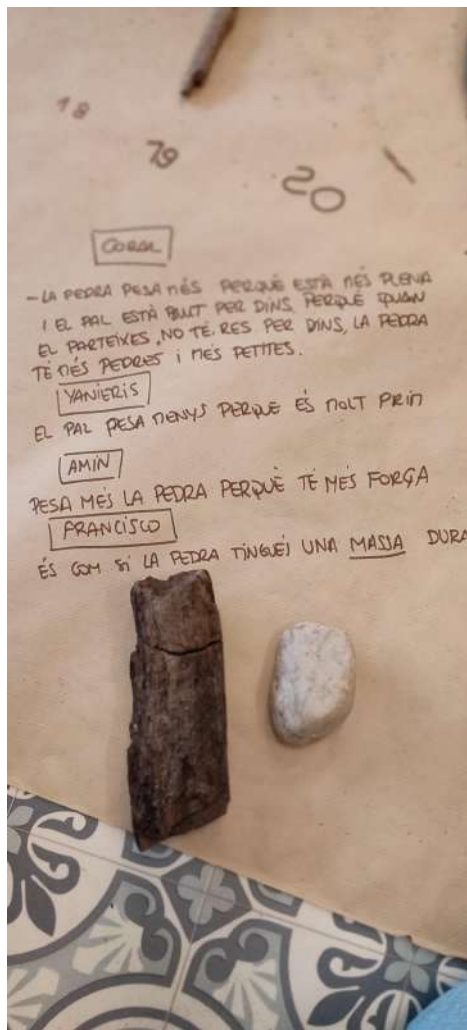 18
19
20
CORAL
- LA PEDRA PESA MÉS PERQUÈ ESTÀ MÉS PLENA
I EL PAL ESTÀ BUIT PER DINS, PERQUÈ QUAN
EL PARTEIXES, NO TÉ RES PER DINS, LA PEDRA
TÉ MÉS PEDRES I MÉS PETITES.
YANIERIS
EL PAL PESA MENYS PERQUÈ ÉS MOLT PRIM
AMIN
PESA MÉS LA PEDRA PERQUÈ TÉ MÉS FORÇA
FRANCISCO
ÉS COM SI LA PEDRA TINGUÉS UNA MASSA DURA